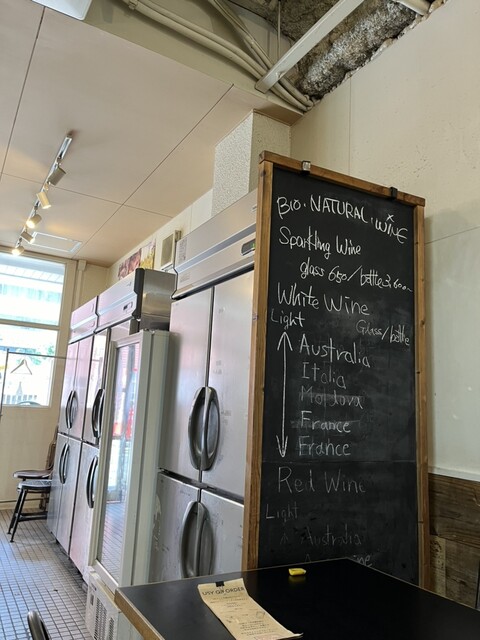 BIO・NATURAL・WINE
Sparkling Wine
glass 650/bottle 3,600~
White Wine
Light
Glass/bottle
Australia
Italia
Moldova
France
France
Red Wine
Light
Australia
ORDER